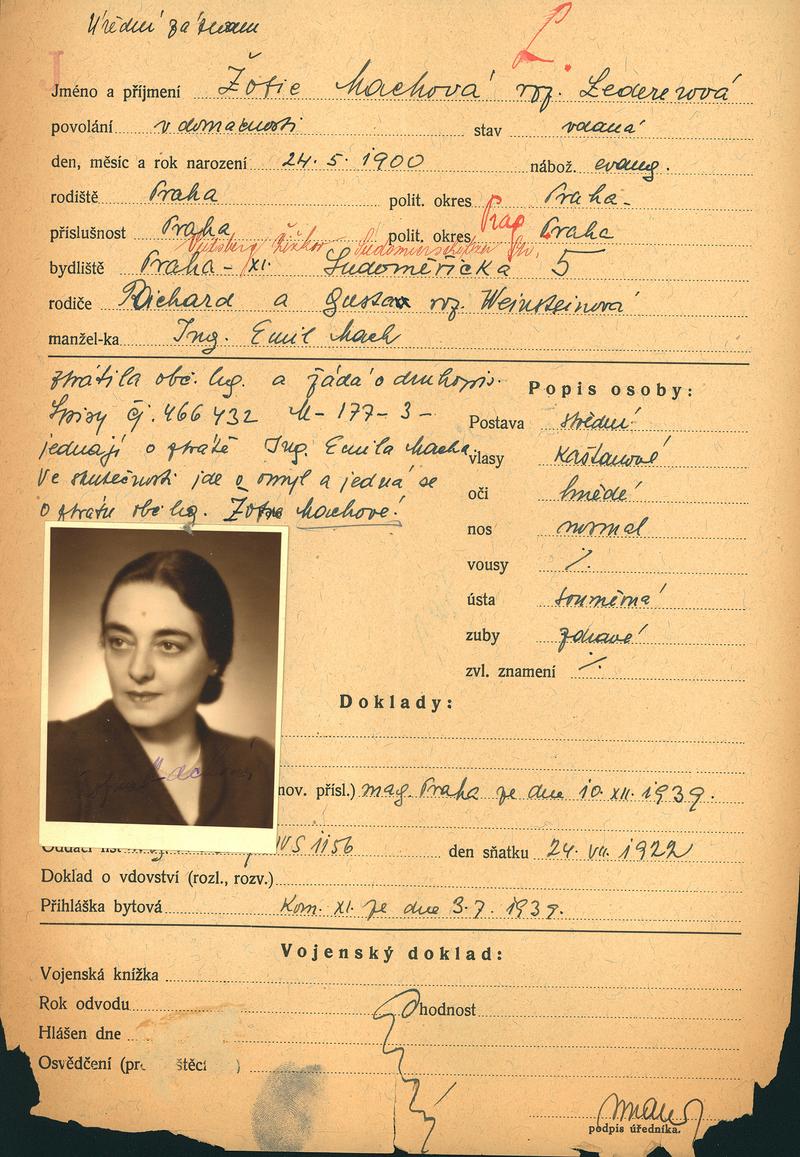 Úřední záznam
L.
J
Jméno a příjmení Žofie Machová roz. Ledererová
povolání v domácnosti stav vdaná
den, měsíc a rok narození 24. 5. 1900 nábož. evang.
rodiště Praha polit. okres Praha-
příslušnost Praha polit. okres Prag Praha
Žižkov
bydliště Praha - XI. Sudoměřická 5
rodiče Richard a Gusta roz. Weinsteinová
manžel-ka Ing. Emil Mach
ztrátila obč. leg. a žádá o druhopis.
Spisy čj. 466 432 M- 177- 3 -
jednají o ztrátě Ing. Emila Macha.
Ve skutečnosti jde o omyl a jedná se
o ztrátu obč. leg. Žofie Machové!
Popis osoby:
Postava střední
vlasy kaštanové
oči hnědé
nos normal
vousy %
ústa souměrná
zuby zdravé
zvl. znamení %
Machová
Doklady:
mov. přísl.) mag. Praha ze dne 10. XII. 1939.
Oddací list 1156 den sňatku 24. VII. 1922
Doklad o vdovství (rozl., rozv.)
Přihláška bytová Kom. XI. ze dne 3. 7. 1939.
Vojenský doklad:
Vojenská knížka
Rok odvodu hodnost
Hlášen dne
Osvědčení
podpis úředníka.